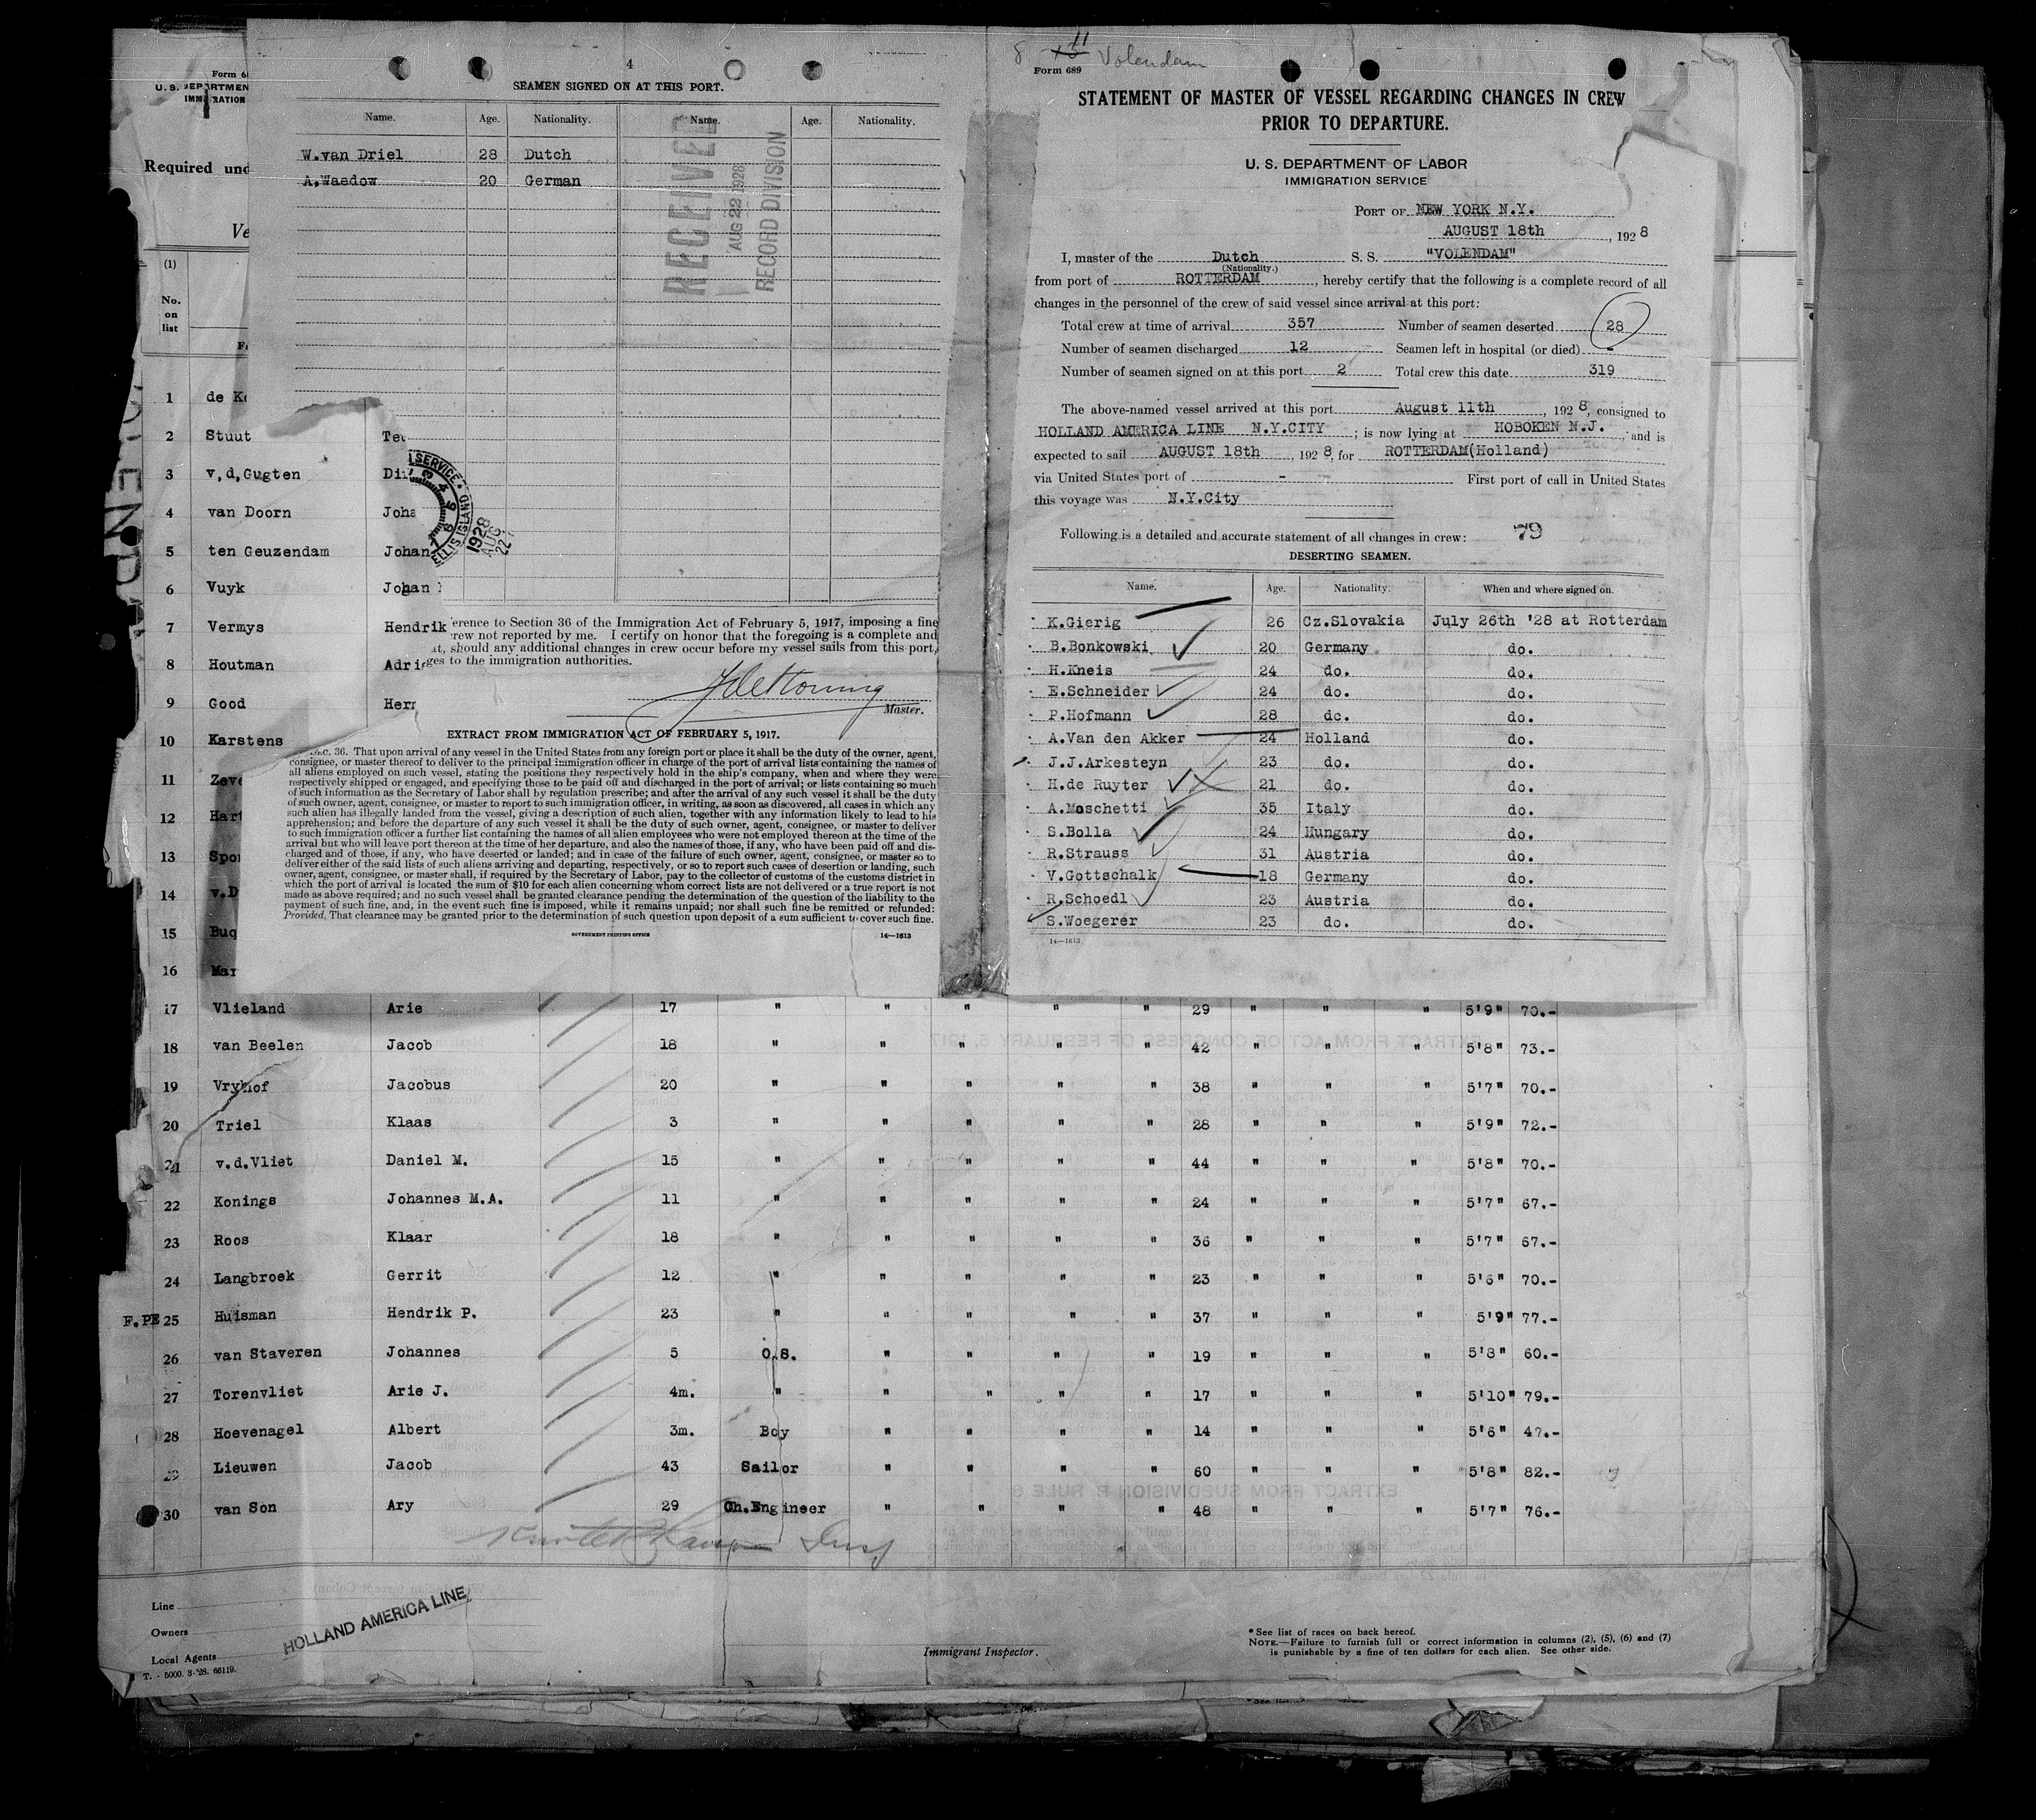 4
SEAMEN SIGNED ON AT THIS PORT.
Name. Age. Nationality. Name. Age. Nationality.
W.van Driel 28 Dutch
A,Waedow 20 German
RECEIVED
AUG 22 1928
RECORD DIVISION
erence to Section 36 of the Immigration Act of February 5, 1917, imposing a fine
rew not reported by me. I certify on honor that the foregoing is a complete and
at, should any additional changes in crew occur before my vessel sails from this port,
ges to the immigration authorities.
Master.
EXTRACT FROM IMMIGRATION ACT OF FEBRUARY 5, 1917.
SEC. 36. That upon arrival of any vessel in the United States from any foreign port or place it shall be the duty of the owner, agent,
consignee, or master thereof to deliver to the principal immigration officer in charge of the port of arrival lists containing the names of
all aliens employed on such vessel, stating the positions they respectively hold in the ship's company, when and where they were
respectively shipped or engaged, and specifying those to be paid off and discharged in the port of arrival; or lists containing so much
of such information as the Secretary of Labor shall by regulation prescribe; and after the arrival of any such vessel it shall be the duty
of such owner, agent, consignee, or master to report to such immigration officer, in writing, as soon as discovered, all cases in which any
such alien has illegally landed from the vessel, giving a description of such alien, together with any information likely to lead to his
apprehension; and before the departure of any such vessel it shall be the duty of such owner, agent, consignee, or master to deliver
to such immigration officer a further list containing the names of all alien employees who were not employed thereon at the time of the
arrival but who will leave port thereon at the time of her departure, and also the names of those, if any, who have been paid off and dis-
charged and of those, if any, who have deserted or landed; and in case of the failure of such owner, agent, consignee, or master so to
deliver either of the said lists of such aliens arriving and departing, respectively, or so to report such cases of desertion or landing, such
owner, agent, consignee, or master shall, if required by the Secretary of Labor, pay to the collector of customs of the customs district in
which the port of arrival is located the sum of $10 for each alien concerning whom correct lists are not delivered or a true report is not
made as above required; and no such vessel shall be granted clearance pending the determination of the question of the liability to the
payment of such fine, and, in the event such fine is imposed, while it remains unpaid; nor shall such fine be remitted or refunded:
Provided, That clearance may be granted prior to the determination of such question upon deposit of a sum sufficient to cover such fine.
GOVERNMENT PRINTING OFFICE 14—1613
11
8 Volendam
Form 689
STATEMENT OF MASTER OF VESSEL REGARDING CHANGES IN CREW
PRIOR TO DEPARTURE.
U. S. DEPARTMENT OF LABOR
IMMIGRATION SERVICE
PORT OF NEW YORK N.Y.
AUGUST 18th, 1928
I, master of the Dutch S. S. "VOLENDAM"
(Nationality.)
from port of ROTTERDAM, hereby certify that the following is a complete record of all
changes in the personnel of the crew of said vessel since arrival at this port:
Total crew at time of arrival 357 Number of seamen deserted 28
Number of seamen discharged 12 Seamen left in hospital (or died) -
Number of seamen signed on at this port 2 Total crew this date 319
The above-named vessel arrived at this port August 11th, 1928, consigned to
HOLLAND AMERICA LINE N.Y.CITY; is now lying at HOBOKEN N.J., and is
expected to sail AUGUST 18th, 1928, for ROTTERDAM(Holland)
via United States port of - First port of call in United States
this voyage was N.Y.City
Following is a detailed and accurate statement of all changes in crew: 79
DESERTING SEAMEN.
Name. Age. Nationality. When and where signed on.
K.Gierig 26 Cz.Slovakia July 26th '28 at Rotterdam
B.Bonkowski 20 Germany do.
H.Kneis 24 do. do.
E.Schneider 24 do. do.
P.Hofmann 28 do. do.
A.Van den Akker 24 Holland do.
J.J.Arkesteyn 23 do. do.
H.de Ruyter 21 do. do.
A.Moschetti 35 Italy do.
S.Bolla 24 Hungary do.
R.Strauss 31 Austria do.
V.Gottschalk 18 Germany do.
R.Schoedl 23 Austria do.
S.Woegerer 23 do. do.
14—1613
Form 6
U. S. DEPARTMEN
IMMIGRATION
Required und
Ve
(1)
No.
on
list
1 de Ko
2 Stuut
3 v,d,Gugten
4 van Doorn Joha
5 ten Geuzendam Johan
6 Vuyk Johan
7 Vermys Hendrik
8 Houtman Adri
9 Good Her
10 Karstens
11 Zeve
12 Hart
13 Spo
14 v.D
15 Buq
16 Mar
SERVICE
ELLIS ISLAND
1928
AUG
22
17 Vlieland Arie 17 " " " " " 29 " " " 5'9" 70.-
18 van Beelen Jacob 18 " " " " " 42 " " " 5'8" 73.-
19 Vryhof Jacobus 20 " " " " " 38 " " " 5'7" 70.-
20 Triel Klaas 3 " " " " " 28 " " " 5'9" 72.-
21 v.d.Vliet Daniel M. 15 " " " " " 44 " " " 5'8" 70.-
22 Konings Johannes M.A. 11 " " " " " 24 " " " 5'7" 67.-
23 Roos Klaar 18 " " " " " 36 " " " 5'7" 67.-
24 Langbroek Gerrit 12 " " " " " 23 " " " 5'6" 70.-
F.PE 25 Huisman Hendrik P. 23 " " " " " 37 " " " 5'9" 77.-
26 van Staveren Johannes 5 O.S. " " " " 19 " " " 5'8" 60.-
27 Torenvliet Arie J. 4m. " " " " " 17 " " " 5'10" 79.-
28 Hoevenagel Albert 3m. Boy " " " " 14 " " " 5'6" 47.-
29 Lieuwen Jacob 43 Sailor " " " " 60 " " " 5'8" 82.-
30 van Son Ary 29 Ch.Engineer " " " " 48 " " " 5'7" 76.-
Line
Owners
Local Agents
HOLLAND AMERICA LINE
T. - 5000. 3-'28. 66119.
Immigrant Inspector.
* See list of races on back hereof.
NOTE.—Failure to furnish full or correct information in columns (2), (5), (6) and (7)
is punishable by a fine of ten dollars for each alien. See other side.